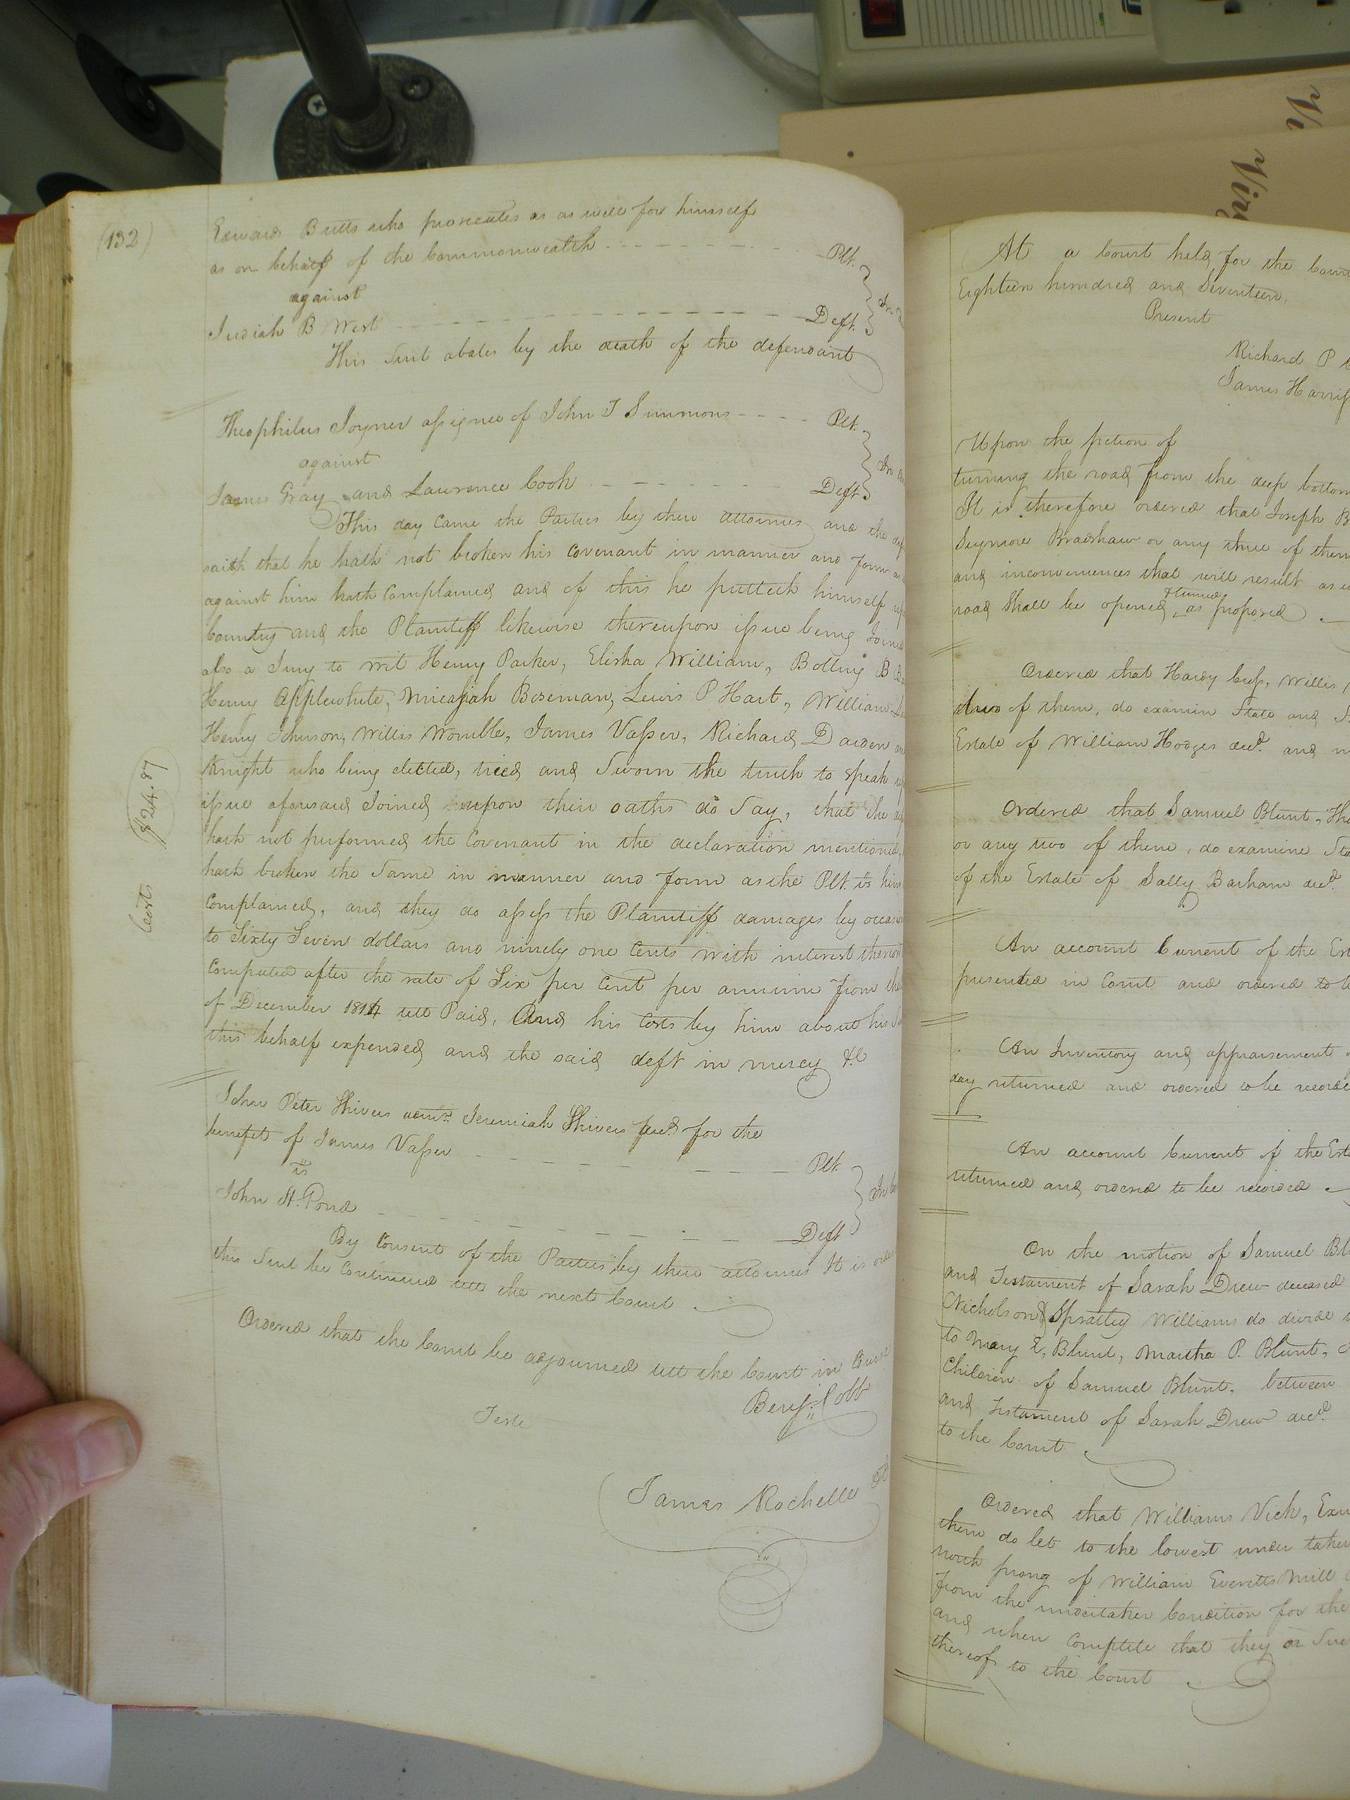 (132)
Edward Butts who prosecutes as as well for himself
as on behalf of the Commonwealth Plt.
against
Judiah B West Deft.
This Suit abates by the death of the defendant
Theophilus Joyner assignee of John T Simmons Plt.
against
James Gray and Lawrence Cook Deft
This day came the Parties by their attornies and the
saith that he hath not broken his covenant in manner and form
against him hath Complained and of this he putteth himself
Country and the Plaintiff likewise thereupon issue being Joined
also a Jury to wit Henry Parker, Elisha William, Bolling B
Henry Applewhite, Micajah Boseman, Lewis P Hart, William
Henry Johnson, Willis Womble, James Vasser, Richard Darden
Knight who being elected, tried and Sworn the truth to speak
issue aforesaid Joined upon their oaths do Say, that the
hath not performed the Covenant in the declaration mentioned,
hath broken the Same in manner and form as the Plt.
Complained, and they do assess the Plaintiff damages by
to Sixty Seven dollars and ninety one Cents with interest thereon
Computed after the rate of Six per Cent per annum from the
of December 1814 till Paid, And his Costs by him about his
this behalf expended and the said deft in mercy &c
Costs $24.87
John Peter Shivers admr. Jeremiah Shivers decd. for the
benefit of James Vasser Plt.
vs
John H. Pond Deft
By Consent of the Parties by their attornies It is
this Suit be Continued till the next Court
Ordered that the Court be adjourned till the Court in
Benj. Cobb
Teste
James Rochelle
At a Court held for the
Eighteen hundred and Seventeen,
Present
Richard P
James
Upon the petition of
turning the road from the deep bottom
It is therefore ordered that Joseph
Seymore Bradshaw or any three of them
and inconveniences that will result as
road Shall be opened, as proposed
Ordered that Hardy Cross, Willis
two of them, do examine State and
Estate of William Hodges decd. and
Ordered that Samuel Blunt,
or any two of them, do examine
of the Estate of Sally Barham decd.
An account Current of the
presented in Court and ordered to
An Inventory and appraisement
day returned and ordered to be
An account Current of the
returned and ordered to be recorded
On the motion of Samuel
and Testament of Sarah Drew deceased
Nicholson & Spratley Williams do divide
to Mary E, Blunt, Martha P. Blunt,
Children of Samuel Blunt, between
and Testament of Sarah Drew decd.
to the Court
Ordered that Williams Vick,
them do let to the lowest under
north prong of William Everetts Mill
from the undertaker Condition for the
and when Complete that they or
thereof to the Court